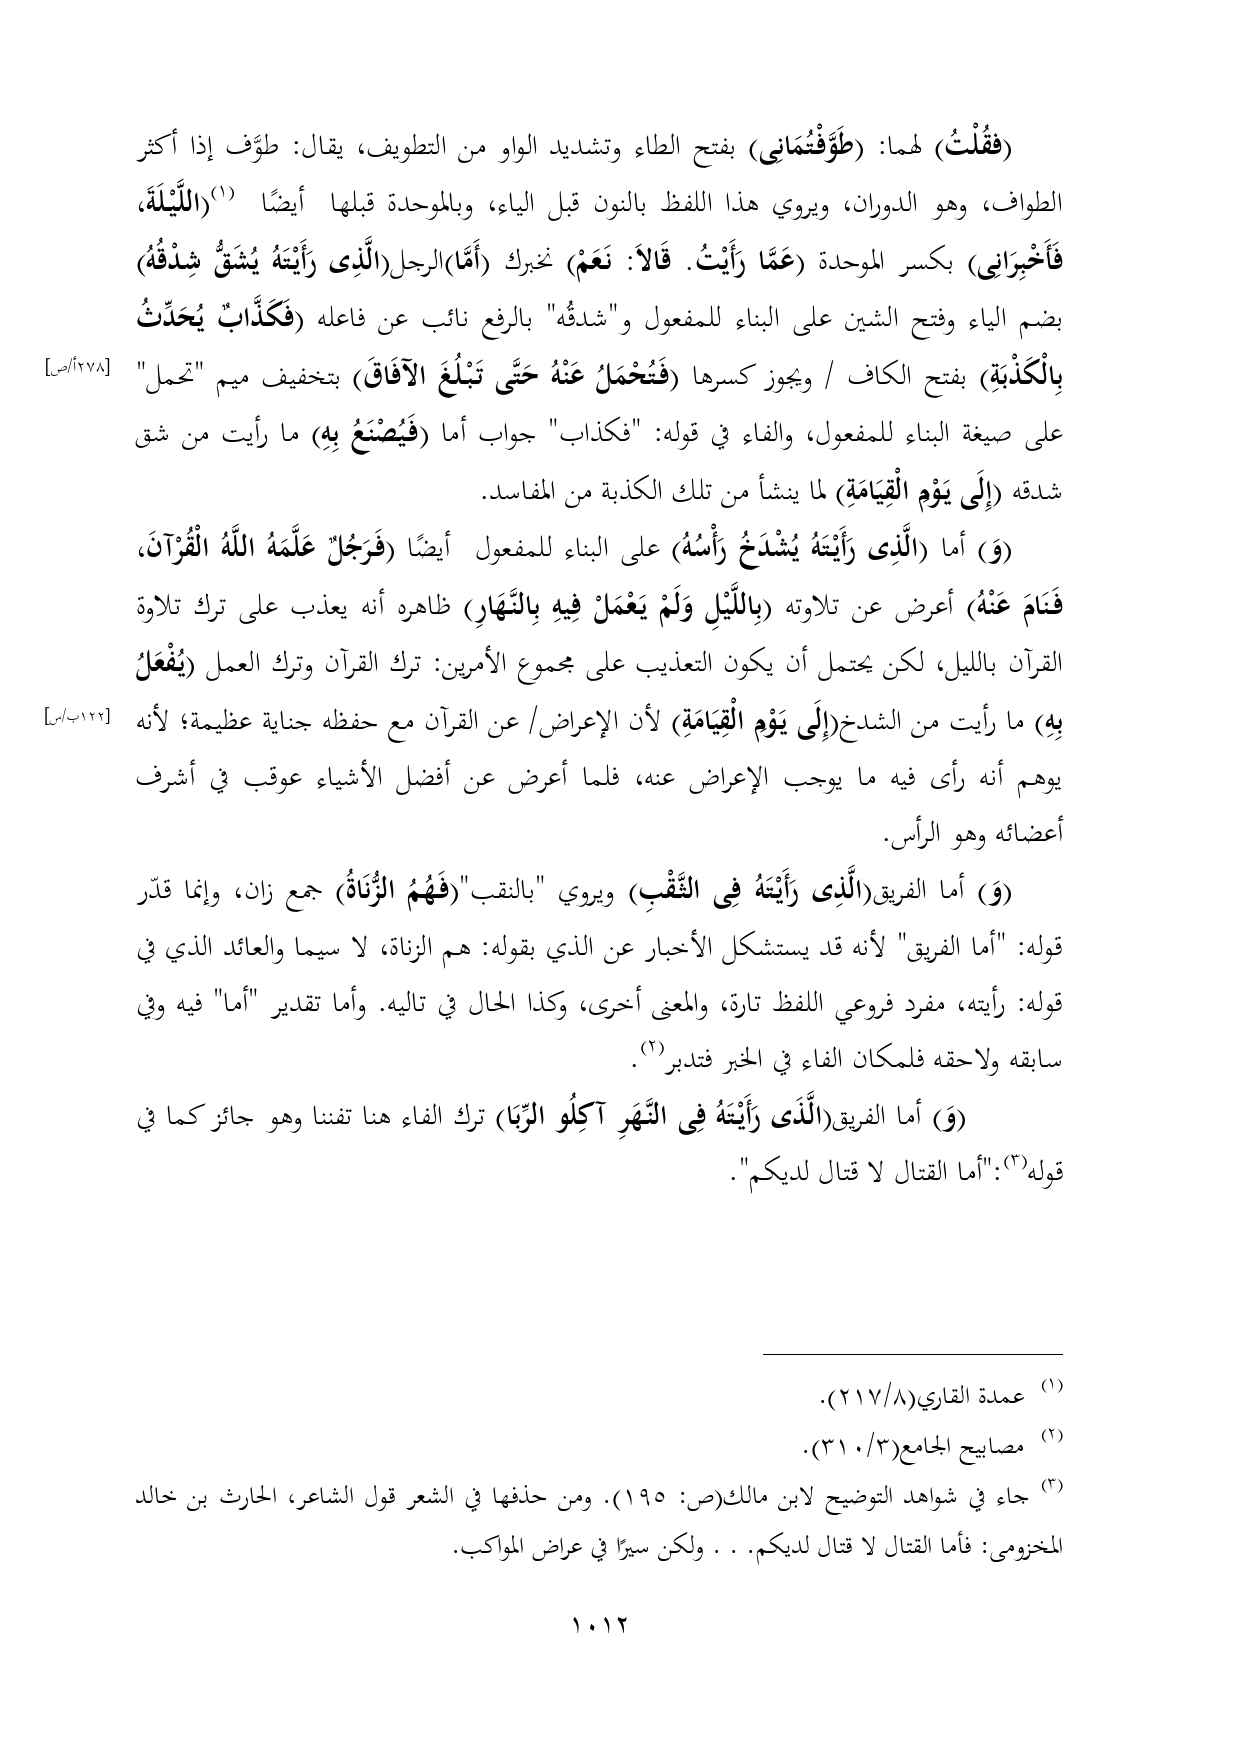 (فقُلْتُ) لهما: (طَوَّفْتُمَانِى) بفتح الطاء وتشديد الواو من التطويف، يقال: طوَّف إذا أكثر
الطواف، وهو الدوران، ويروي هذا اللفظ بالنون قبل الياء، وبالموحدة قبلها أيضًا (١)(اللَّيْلَةَ،
فَأَخْبِرَانِى) بكسر الموحدة (عَمَّا رَأَيْتُ. قَالاَ: نَعَمْ) نخبرك (أَمَّا)الرجل(الَّذِى رَأَيْتَهُ يُشَقُّ شِدْقُهُ)
بضم الياء وفتح الشين على البناء للمفعول و"شدقُه" بالرفع نائب عن فاعله (فَكَذَّابٌ يُحَدِّثُ
بِالْكَذْبَةِ) بفتح الكاف / ويجوز كسرها (فَتُحْمَلُ عَنْهُ حَتَّى تَبْلُغَ الآفَاقَ) بتخفيف ميم "تحمل" [٢٧٨أ/ص]
على صيغة البناء للمفعول، والفاء في قوله: "فكذاب" جواب أما (فَيُصْنَعُ بِهِ) ما رأيت من شق
شدقه (إِلَى يَوْمِ الْقِيَامَةِ) لما ينشأ من تلك الكذبة من المفاسد.
(وَ) أما (الَّذِى رَأَيْتَهُ يُشْدَخُ رَأْسُهُ) على البناء للمفعول أيضًا (فَرَجُلٌ عَلَّمَهُ اللَّهُ الْقُرْآنَ،
فَنَامَ عَنْهُ) أعرض عن تلاوته (بِاللَّيْلِ وَلَمْ يَعْمَلْ فِيهِ بِالنَّهَارِ) ظاهره أنه يعذب على ترك تلاوة
القرآن بالليل، لكن يحتمل أن يكون التعذيب على مجموع الأمرين: ترك القرآن وترك العمل (يُفْعَلُ
بِهِ) ما رأيت من الشدخ(إِلَى يَوْمِ الْقِيَامَةِ) لأن الإعراض/ عن القرآن مع حفظه جناية عظيمة؛ لأنه [١٢٢ب/س]
يوهم أنه رأى فيه ما يوجب الإعراض عنه، فلما أعرض عن أفضل الأشياء عوقب في أشرف
أعضائه وهو الرأس.
(وَ) أما الفريق(الَّذِى رَأَيْتَهُ فِى الثَّقْبِ) ويروي "بالنقب"(فَهُمُ الزُّنَاةُ) جمع زان، وإنما قدّر
قوله: "أما الفريق" لأنه قد يستشكل الأخبار عن الذي بقوله: هم الزناة، لا سيما والعائد الذي في
قوله: رأيته، مفرد فروعي اللفظ تارة، والمعنى أخرى، وكذا الحال في تاليه. وأما تقدير "أما" فيه وفي
سابقه ولاحقه فلمكان الفاء في الخبر فتدبر(٢).
(وَ) أما الفريق(الَّذَى رَأَيْتَهُ فِى النَّهَرِ آكِلُو الرِّبَا) ترك الفاء هنا تفننا وهو جائز كما في
قوله(٣):"أما القتال لا قتال لديكم".
(١) عمدة القاري(٢١٧/٨).
(٢) مصابيح الجامع(٣١٠/٣).
(٣) جاء في شواهد التوضيح لابن مالك(ص: ١٩٥). ومن حذفها في الشعر قول الشاعر، الحارث بن خالد
المخزومى: فأما القتال لا قتال لديكم. . . ولكن سيرًا في عراض المواكب.
١٠١٢